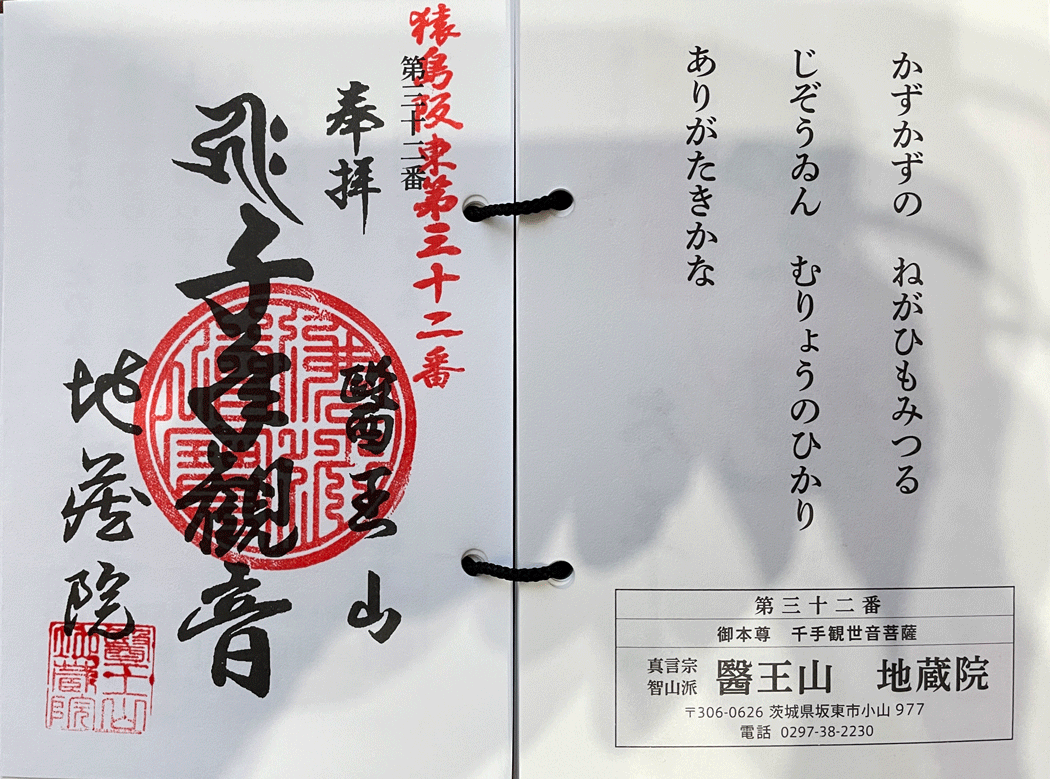 かずかずの　ねがひもみつる
じぞうゐん　むりょうのひかり
ありがたきかな
第三十二番
御本尊　千手観世音菩薩
真言宗
智山派
醫王山　地蔵院
〒306-0626 茨城県坂東市小山 977
電話 0297-38-2230
猿島阪東第三十二番
第三十二番
奉拝
醫王山
千手観音
地蔵院
醫王山
地蔵院